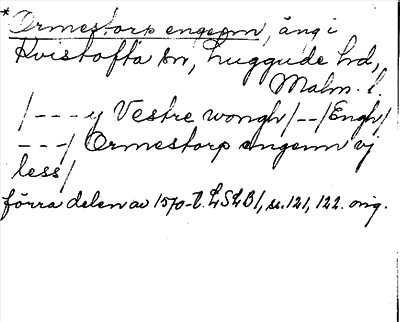 * Ormestorp engenn, äng i
Kvistofta sn, Luggude hd,
Malm. l.
/ - - - y Vestre wongh / - - / Engh /
- - - / Ormestorp engenn vj
less /
förra delen av 1570-t. LSLB1, s. 121, 122. orig.